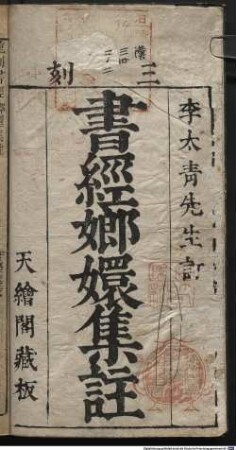 三刻
李太青先生訂
書經嫏嬛集註
天繪閣藏板